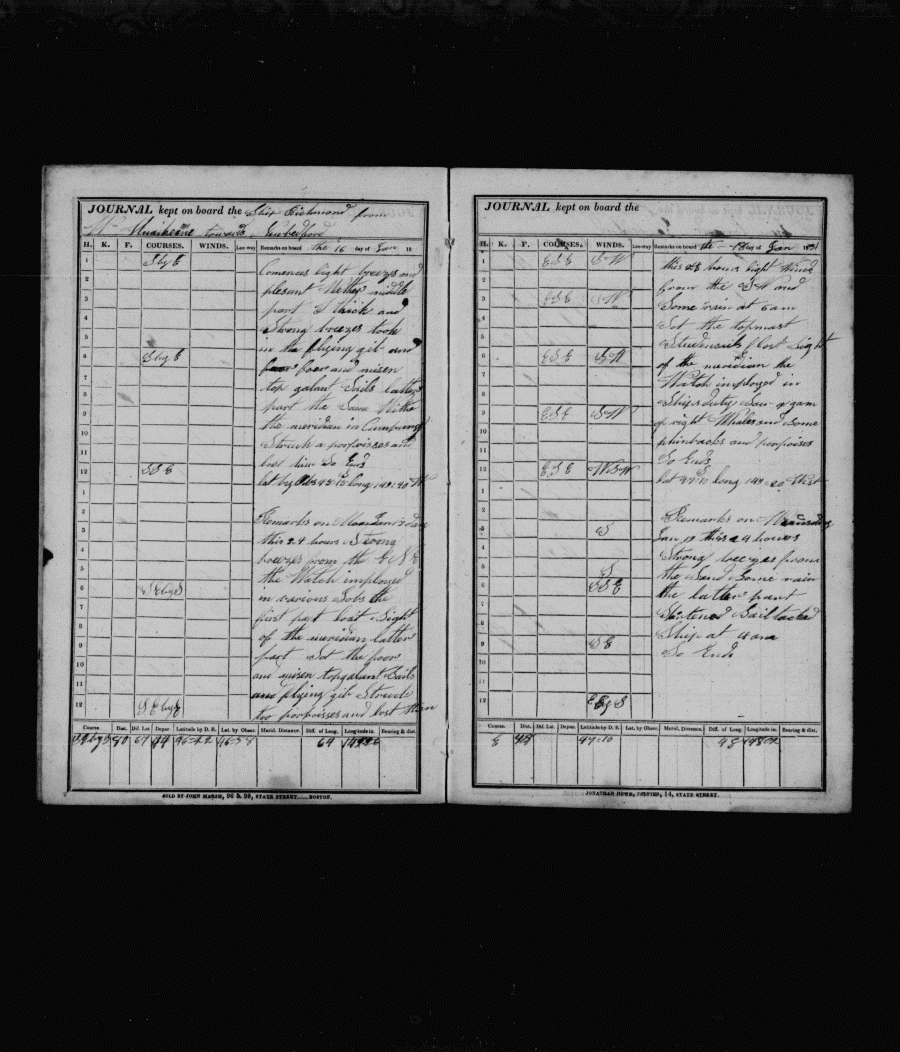 JOURNAL kept on board the Ship Richmond from
towards
H. K. F. COURSES. WINDS. Lee way Remarks on board the 16 day of Jan 18
1 S by E
Comences light breezes and
2 plesant Wether middle
3 part thick and
4 Strong breezes took
5 in the flying gib and
6 S by E fore and misen
7 top galant Sails latter
8 part the Same Withe
9 the meridian in
10 Struck a porpoisses and
11 lost him So Ends
12 SSE lat by Obs 45=15 long 149=40 W
1
2 Remarks on
3 this 24 hours Strong
4 breezes from the E S E
5 the Watch imployed
6 S E by S in various Jobs the
7 first part lost Sight
8 of the meridian latter
9 part Set the foor
10 and misen topgalant Sails
11 and flying gib Struck
12 S E by E too porpoisses and lost them
Course. Dist. Dif. Lat Depar. Latitude by D. R. Lat. by Obser. Merid. Distance. Diff. of Long. Longitude in. Bearing & dist.
80 67 44 64
SOLD BY JOHN MARSH, 96 & 98, STATE STREET......BOSTON.
JOURNAL kept on board the
H. K. F. COURSES. WINDS. Lee way Remarks on board the 18 day of Jan
1 E S E S W this 24 hours light Wind
2 from the S W and
3 E S E S W Some rain at 6 am
4 Set the topmast
5 Studensails lost Sight
6 E S E S W of the meridian the
7 Watch imployed in
8 Ships duty Saw a gam
9 E S E S W of right Whales and Some
10 phinbacks and porpoises
11 So Ends
12 E S E W S W lat 47=10 long 149=20 West
1
2 Remarks on
3 S Jan 19 this 24 hours
4 Strong breezes from
5 S the Sand Some rain
6 S S E the latter part
7 Shortened Sail tacked
8 Ship at 4 am
9 S E So Ends
10
11
12
Course. Dist. Dif. Lat Depar. Latitude by D. R. Lat. by Obser. Merid. Distance. Diff. of Long. Longitude in. Bearing & dist.
E 48 47=10 48
JONATHAN HOWE, PRINTER, 14, STATE STREET.